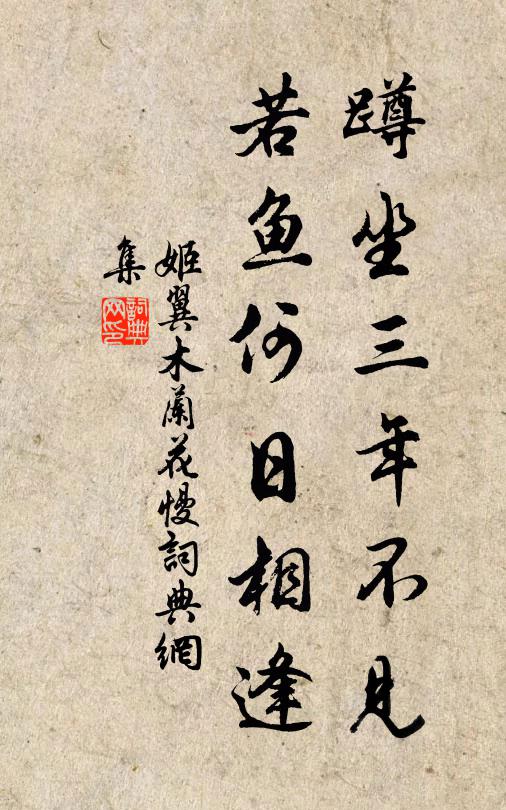 蹲坐三年不見
若魚何日相逢
姬翼木蘭花慢詞典網
集
詞典
网印